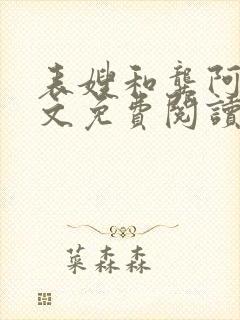 表嫂和龚阿
文免費閱讀
菜森森